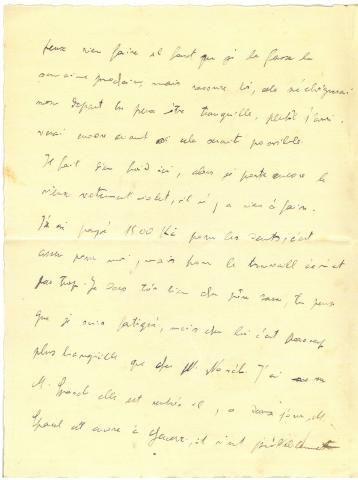 peux rien faire il faut que je le fasse la
semaine prochaine, mais rassure toi, cela n'éloignerai
mon départ tu peux être tranquille, plutôt j'arri-
verai encore avant si cela serait possible.
Il fait bien froid ici, alors je porte encore le
vieux vêtement violet, il n'y a rien à faire.
J'ai payé 1500 Kč pour les dents, c'est
assez pour moi, mais pour le travail c'était
pas trop. Je dors très bien du père, tu peux
que je suis fatigué, mais chez lui c'est beaucoup
plus tranquille que chez M. J'ai vu
M. elle est rentrée il y a jours, M.
est encore à , il n'est probablement